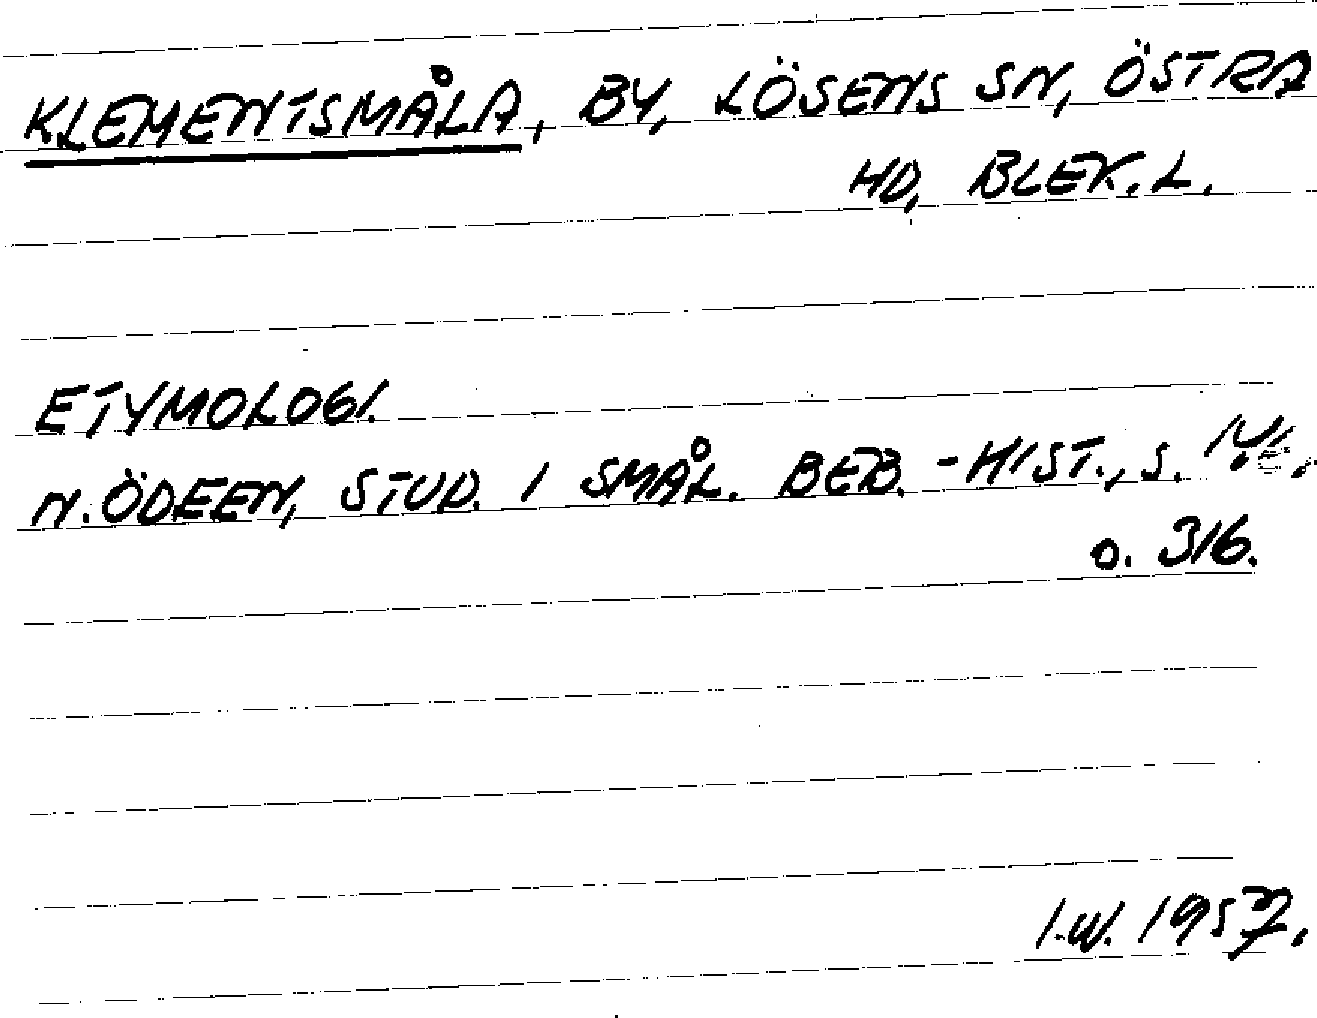 KLEMENTSMÅLA, BY, LÖSENS SN, ÖSTRA
HD, BLEK. L.
ETYMOLOGI.
N. ÖDEEN, STUD. I SMÅL. BEB.-HIST., S.
O. 316.
I.W. 1957.